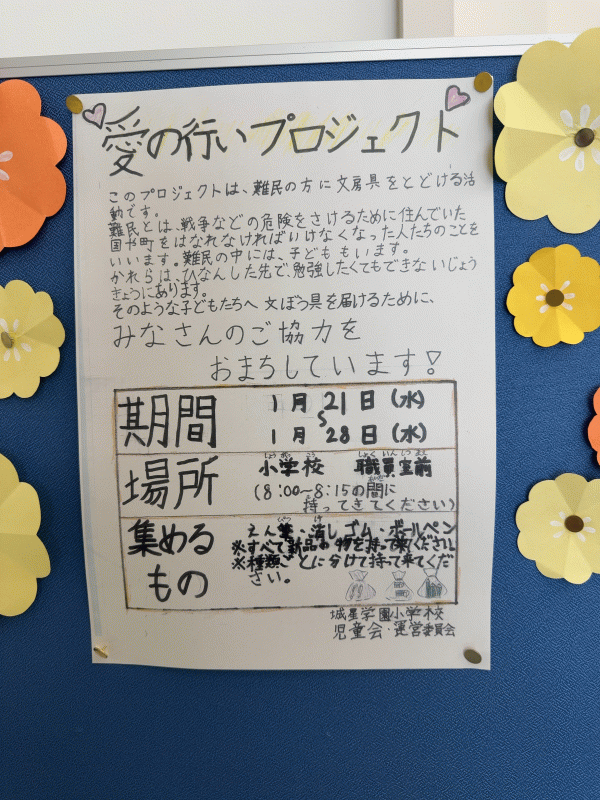 愛の行いプロジェクト
このプロジェクトは、難民の方に文房具をとどける活
動です。
難民とは、戦争などの危険をさけるために住んでいた
国や町をはなれなければいけなくなった人たちのことを
いいます。難民の中には、子どももいます。
かれらは、ひなんした先で、勉強したくてもできないじょう
きょうにあります。
そのような子どもたちへ文ぼう具を届けるために、
みなさんのご協力を
おまちしています!
期間
1月21日(水)
〜
1月28日(水)
場所
小学校 職員室前
(8:00〜8:15の間に
持ってきてください)
集める
もの
えん筆・消しゴム・ボールペン
※すべて新品の物を持って来てください。
※種類ごとに分けて持って来てくだ
さい。
城星学園小学校
児童会・運営委員会